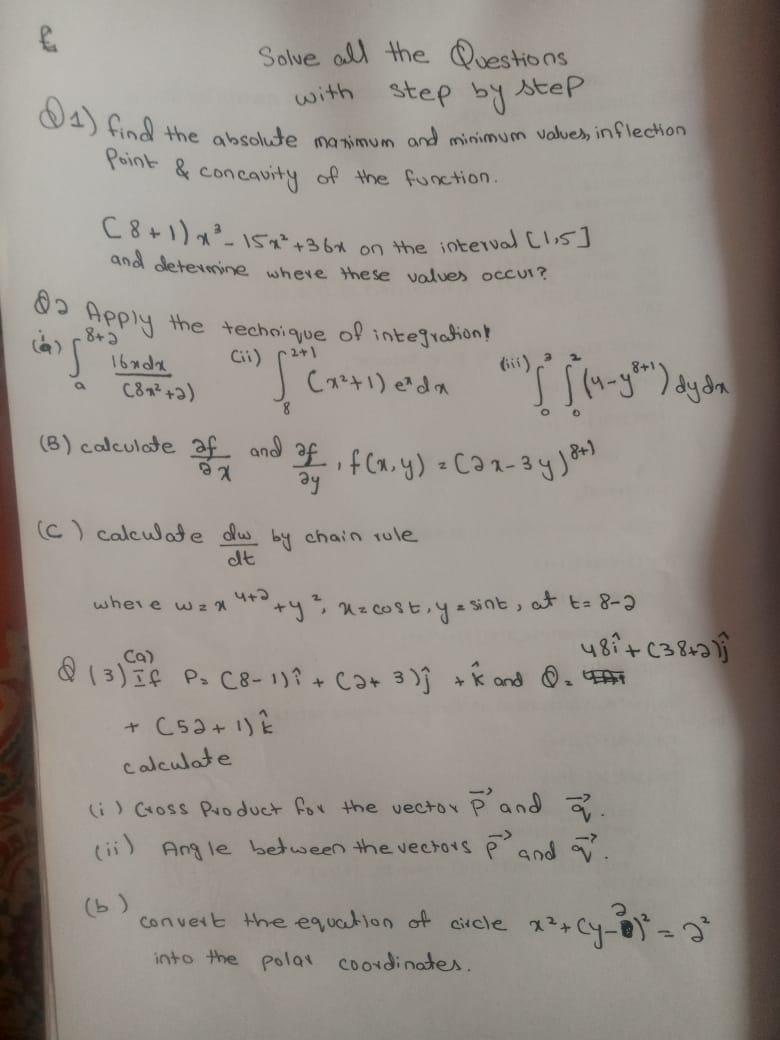 Solve all the Questions
with step by step
Q1) find the absolute maximum and minimum values, inflection
Point & concavity of the function.
(8+1)x³-15x²+36x on the interval [1,5]
and determine where these values occur?
Q2 Apply the technique of integration!
(i) ∫ₐ⁸⁺² 16xdx/(8x²+2) (ii) ∫₈²⁺¹ (x²+1) eˣdx (iii) ∫₀³ ∫₀² (4-y⁸⁺¹) dydx
(B) calculate ∂f/∂x and ∂f/∂y, f(x,y) = (2x-3y)⁸⁺¹
(C) calculate dw/dt by chain rule
where w=x⁴⁺²+y², x=cost, y=sint, at t=8-2
Q(3)(a) If P= (8-1)î + (2+3)ĵ + k̂ and Q= 48î+(38+2)ĵ
+ (52+1)k̂
calculate
(i) Cross Product for the vector p⃗ and q⃗.
(ii) Angle between the vectors p⃗ and q⃗.
(b)
convert the equation of circle x²+(y-2)²=2²
into the polar coordinates.